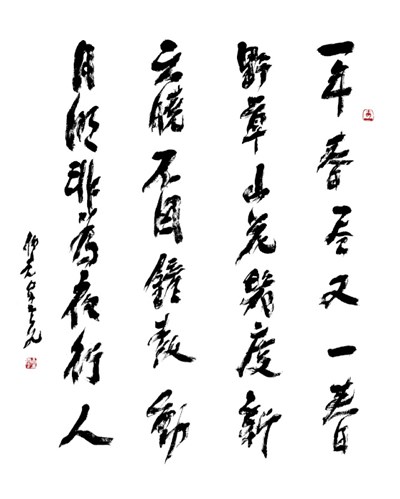 一年春尽又一春
野草山花幾度新
天曉不因鐘鼓動
月明非為夜行人